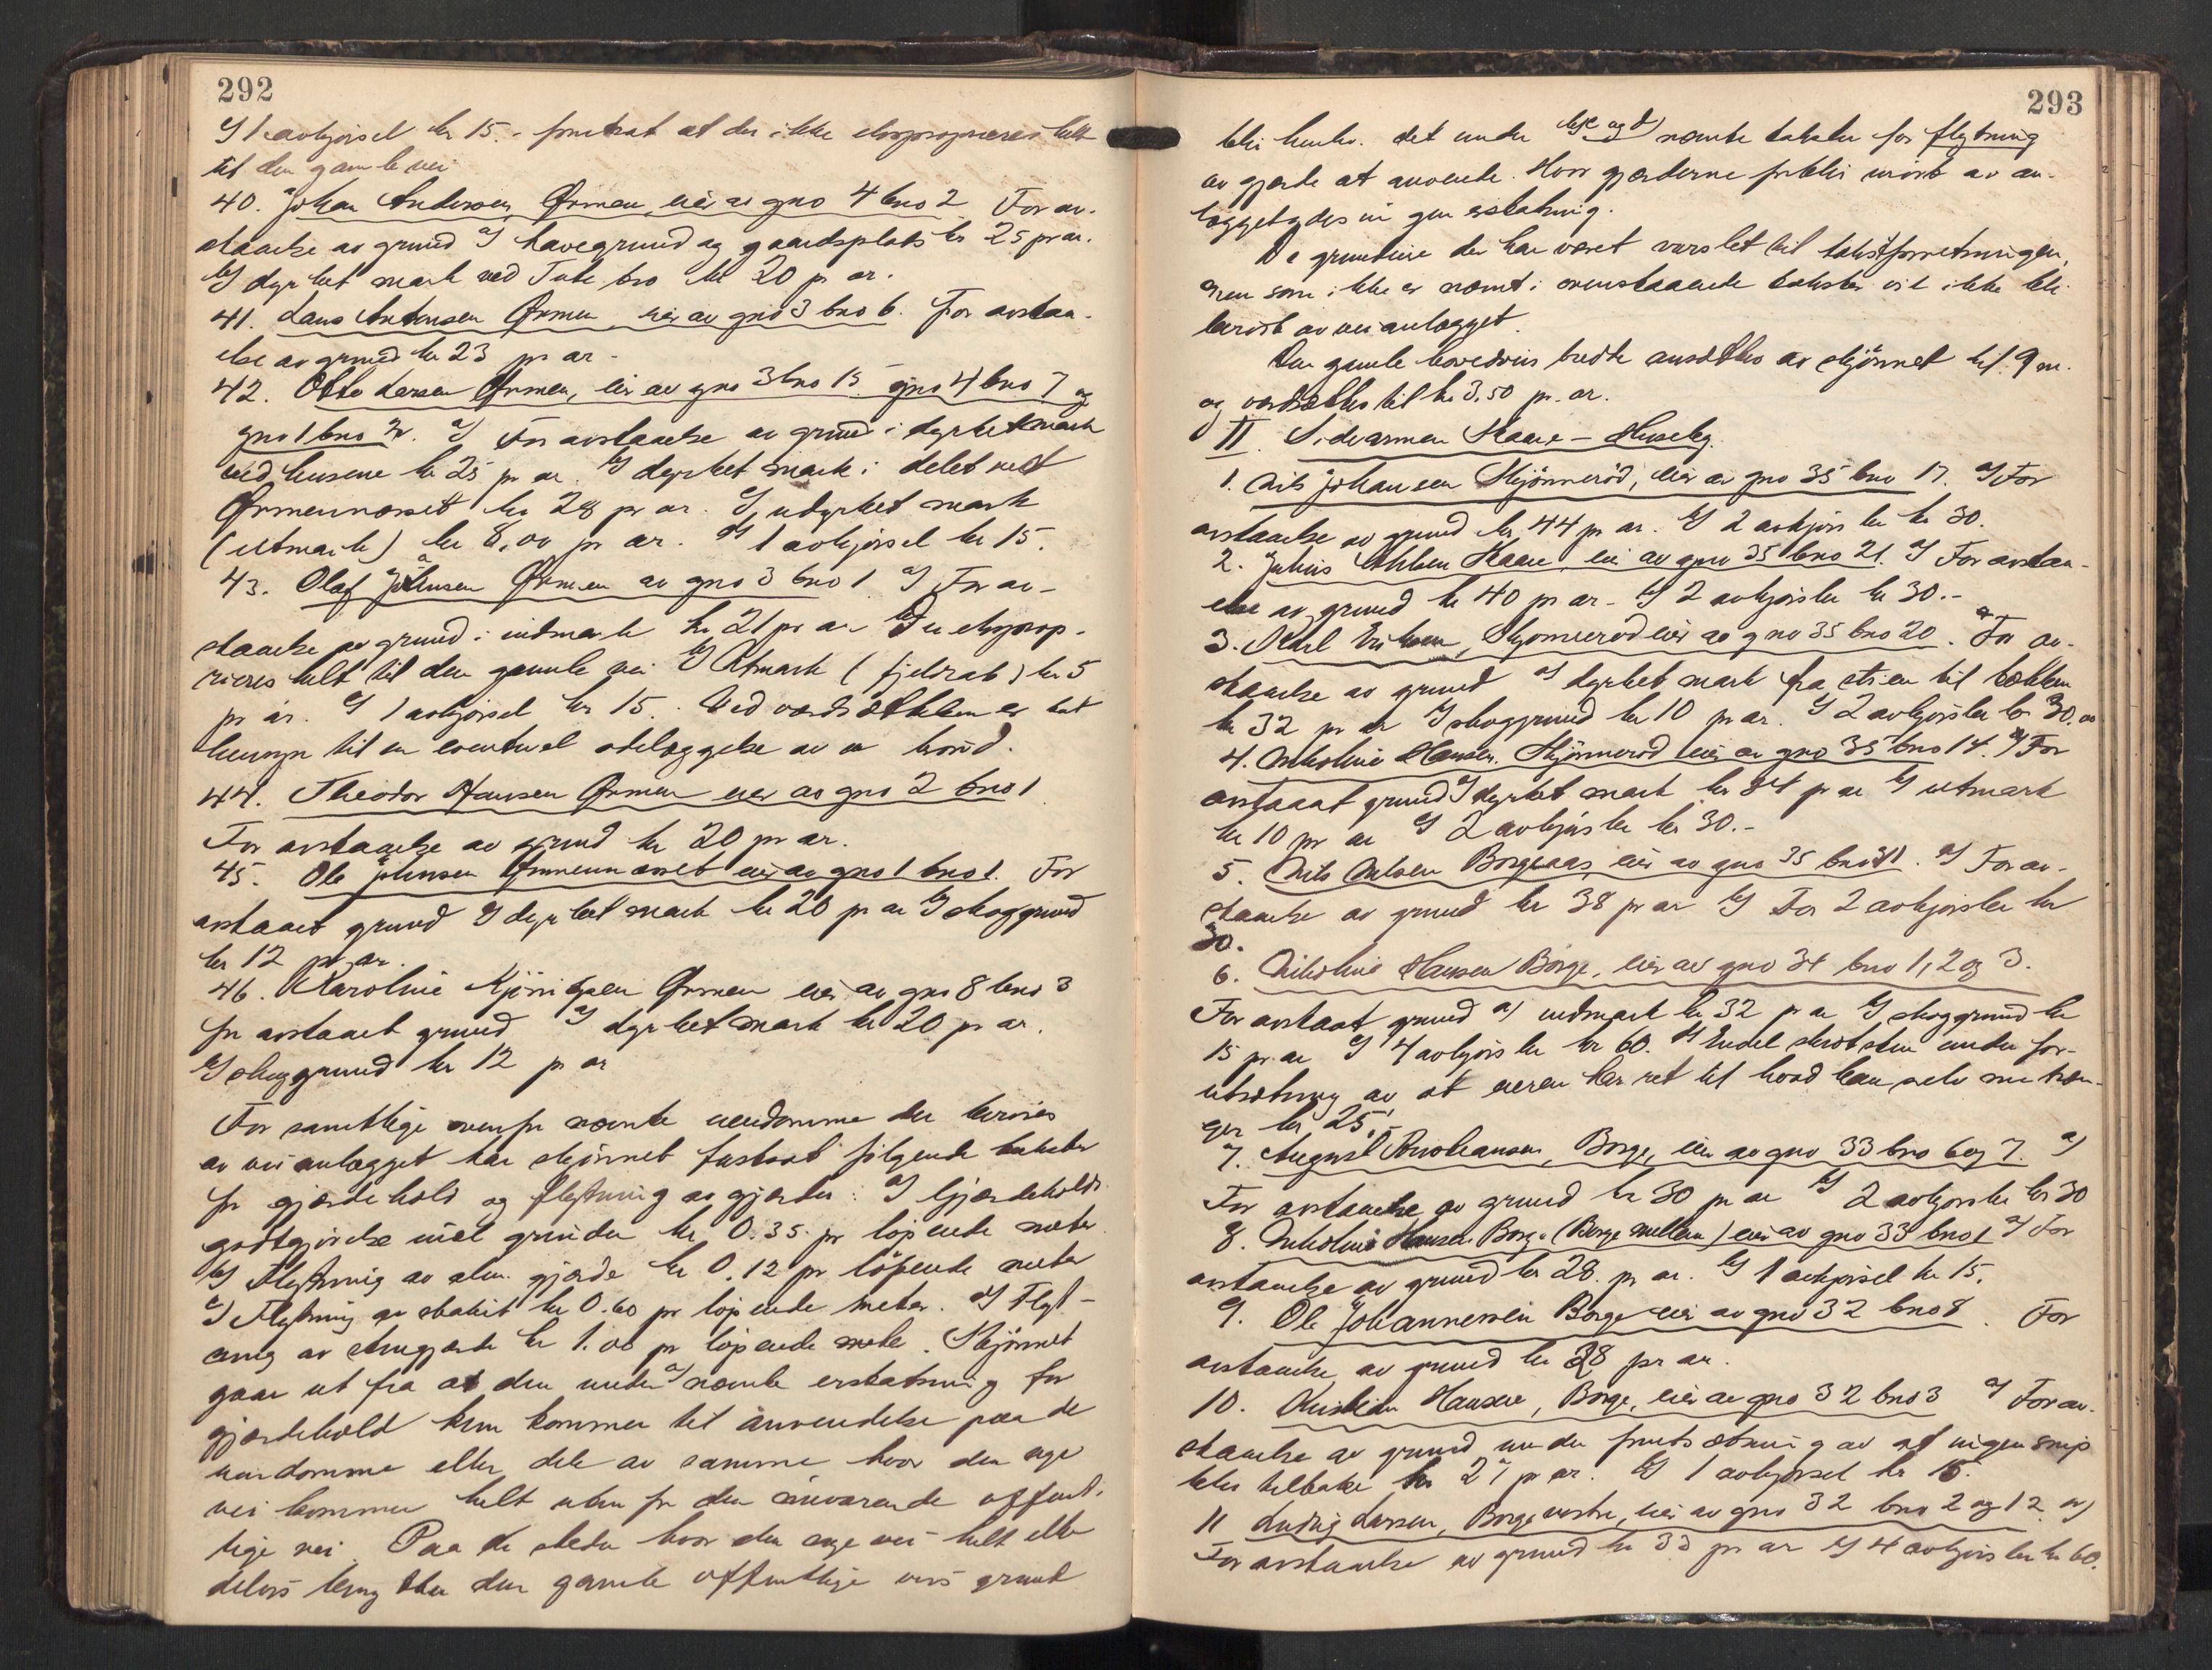 292
c) 1 avkjørsel kr 15.- forutsat at der ikke eksproprieres helt
til den gamle vei
40. Johan Andersen Ørmen, eier av gno 4 bno 2 For av-
staaelse av grund a) havegrund og gaardsplads kr 25 pr ar.
b) dyrket mark ved Tute bro kr 20 pr ar.
41. Lars Antonsen Ørmen, eier av gno 3 bno 6. For avstaa-
else av grund kr 23 pr ar -
42. Otto Larsen Ørmen, eier av gno 3 bno 15 gno 4 bno 7 og
gno 1 bno 2. a) For avstaaelse av grund i dyrket mark
ved husene kr 25 pr ar. b) dyrket mark i delet ved
Ørmennesset kr 28 pr ar. c) udyrket mark
(utmark) kr 8,00 pr ar. d) 1 avkjørsel kr 15.
43. Olaf Johansen Ørmen av gno 3 bno 1 a) For av-
staaelse av grund i indmark kr 21 pr ar Der eksprop-
rieres helt til den gamle vei b) Utmark (fjeldrab) kr 5
pr ar. c) 1 avkjørsel kr 15. Ved værdsættelsen er tat
hensyn til en eventuel ødelæggelse av en brønd.
44. Theodor Hansen Ørmen eier av gno 2 bno 1
For avstaaelse av grund kr 20 pr ar.
45. Ole Johnsen Ørmennesset eier av gno 1 bno 1. For
avstaaet grund a) dyrket mark kr 20 pr ar b) skoggrund
kr 12 pr ar.
46. Karoline Ørmen eier av gno 8 bno 3
for avstaaet grund a) dyrket mark kr 20 pr ar.
b) skoggrund kr 12 pr ar
For samtlige ovenfor nævnte eiendomme der berøres
av veianlægget har skjønnet fastsat følgende takster
for gjærdehold og flytning av gjærder: a) Gjærdeholds
godtgjørelse incl grinder kr 0.35 pr løpende meter
b) Flytning av alm. gjærde kr 0.12 pr løpende meter
c) Flytning av stakit kr 0.60 pr løpende meter. d) Flyt-
ning av stengjærde kr 1.00 pr løpende meter. Skjønnet
gaar ut fra at den under a) nævnte erstatning for
gjærdehold kun kommer til anvendelse paa de
eiendomme eller dele av samme hvor den nye
vei kommer helt uten for den nuværende offent-
lige vei. Paa de steder hvor den nye vei helt eller
delvis beny tter den gamle offentlige veis grund
293
blir henhv. det under b, c og d) nævnte takster for flytning
av gjærde at anvende. Hvor gjærderne forblir urørt av an-
lægget ydes in gen erstatning.
De grundeiere der har været varslet til takstforretningen,
men som ikke er nævnt i ovenstaaende takster vil ikke bli
berørt av veianlægget.
Den gamle hovedveis bredde ansættes av skjønnet til 9 m.
og værdsættes til kr 3.50 pr. ar.
II. Sidearmen Haare - Huseby.
1. Nils Johansen Skjønnerød, eier av gno 35 bno 17. a) For
avstaaelse av grund kr 44 pr ar. b) 2 avkjørsler kr 30.
2. Julius Haare, eier av gno 35 bno 21. a) For avstaa-
else av grund kr 40 pr ar - b) 2 avkjørsler kr 30.-
3. Karl Eriksen, Skjønnerød eier av gno 35 bno 20. For av-
staaelse av grund a) dyrket mark fra stien til bækken
kr 32 pr ar b) skoggrund kr 10 pr ar. c) 2 avkjørsler kr 30.00
4. Nikoline Hansen, Skjønnerød eier av gno 35 bno 14. a) For
avstaaat grund a) dyrket mark kr 34 pr ar b) utmark
kr 10 pr ar c) 2 avkjørsler kr 30.-
5. Nils Nilsen Borgeaas, eier av gno 35 bno 31. a) For av-
staaelse av grund kr 38 pr ar b) For 2 avkjørsler kr
30.
6. Nikoline Hansen Borge, eier av gno 34 bno 1, 2 og 3.
For avstaat grund a) indmark kr 32 pr ar b) skoggrund kr
15 pr. ar c) 4 avkjørsler kr 60. d) Endel skrotsten under for-
utsætning av at eieren har ret til hvad han selv m træn-
ger kr 25.-
7. August Borge, eier av gno 33 bno 6 og 7. a)
For avstaaelse av grund kr 30 pr ar b) 2 avkjørsler kr 30
8. Nikoline Hansen Borge (Borge mellem) eier av gno 33 bno 1 a) For
avstaaelse av grund kr 28. pr ar. b) 1 avkjørsel kr 15.
9. Ole Johannessen Borge eier av gno 32 bno 8. For
avstaaelse av grund kr 28 pr ar.
10. Kristian Hansen, Borge, eier av gno 32 bno 3 a) For av-
staaelse av grund under forutsætning av at ingen snip
blir tilbake kr 27 pr ar. b) 1 avkjørsel kr 15.
11 Ludvig Larsen, Borge vestre, eier av gno 32 bno 2 og 12 a)
For avstaaelse av grund kr 33 pr ar b) 4 avkjørsler kr 60.